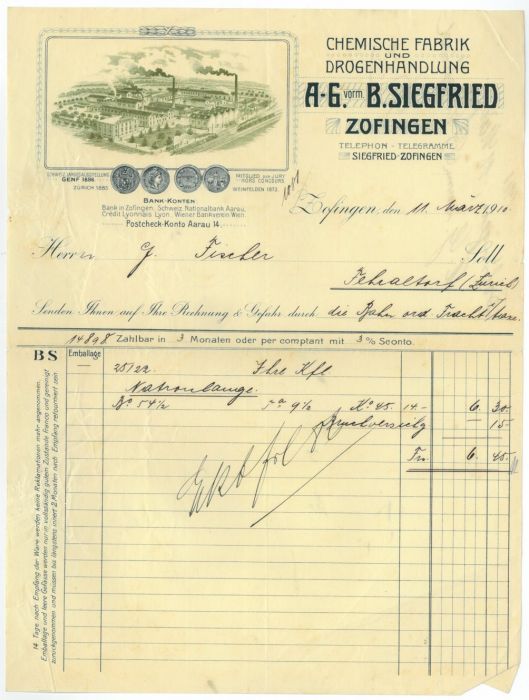 CHEMISCHE FABRIK
UND
DROGENHANDLUNG
A-G. vorm. B. SIEGFRIED
ZOFINGEN
TELEPHON - TELEGRAMME
SIEGFRIED-ZOFINGEN
SCHWEIZ. LANDESAUSSTELLUNG
GENF 1896.
ZÜRICH 1883.
MITGLIED DER JURY
HORS CONCOURS
WEINFELDEN 1873.
BANK-KONTEN
Bank in Zofingen. Schweiz. Nationalbank Aarau,
Crédit Lyonnais Lyon. Wiener Bankverein Wien.
Postcheck-Konto Aarau 14.
Zofingen, den 11. März 1910
Herrn G. Fischer Soll
Fehraltorf (Zürich)
Senden Ihnen auf Ihre Rechnung & Gefahr durch die Bahn ord Fracht
14898 Zahlbar in 3 Monaten oder per comptant mit 3 % Sconto.
BS Emballage
25/22. Ihre
Natronlauge.
Bo 54½ Ta 9½ Ko 45. 14.- 6. 30.
15.-
Frs. 6. 45.-
14 Tage nach Empfang der Ware werden keine Reklamationen mehr angenommen.
Emballage und leere Gefässe werden nur in vollständig gutem Zustande franco und gereinigt
zurückgenommen und müssen bis längstens innert 2 Monaten nach Empfang retourniert sein